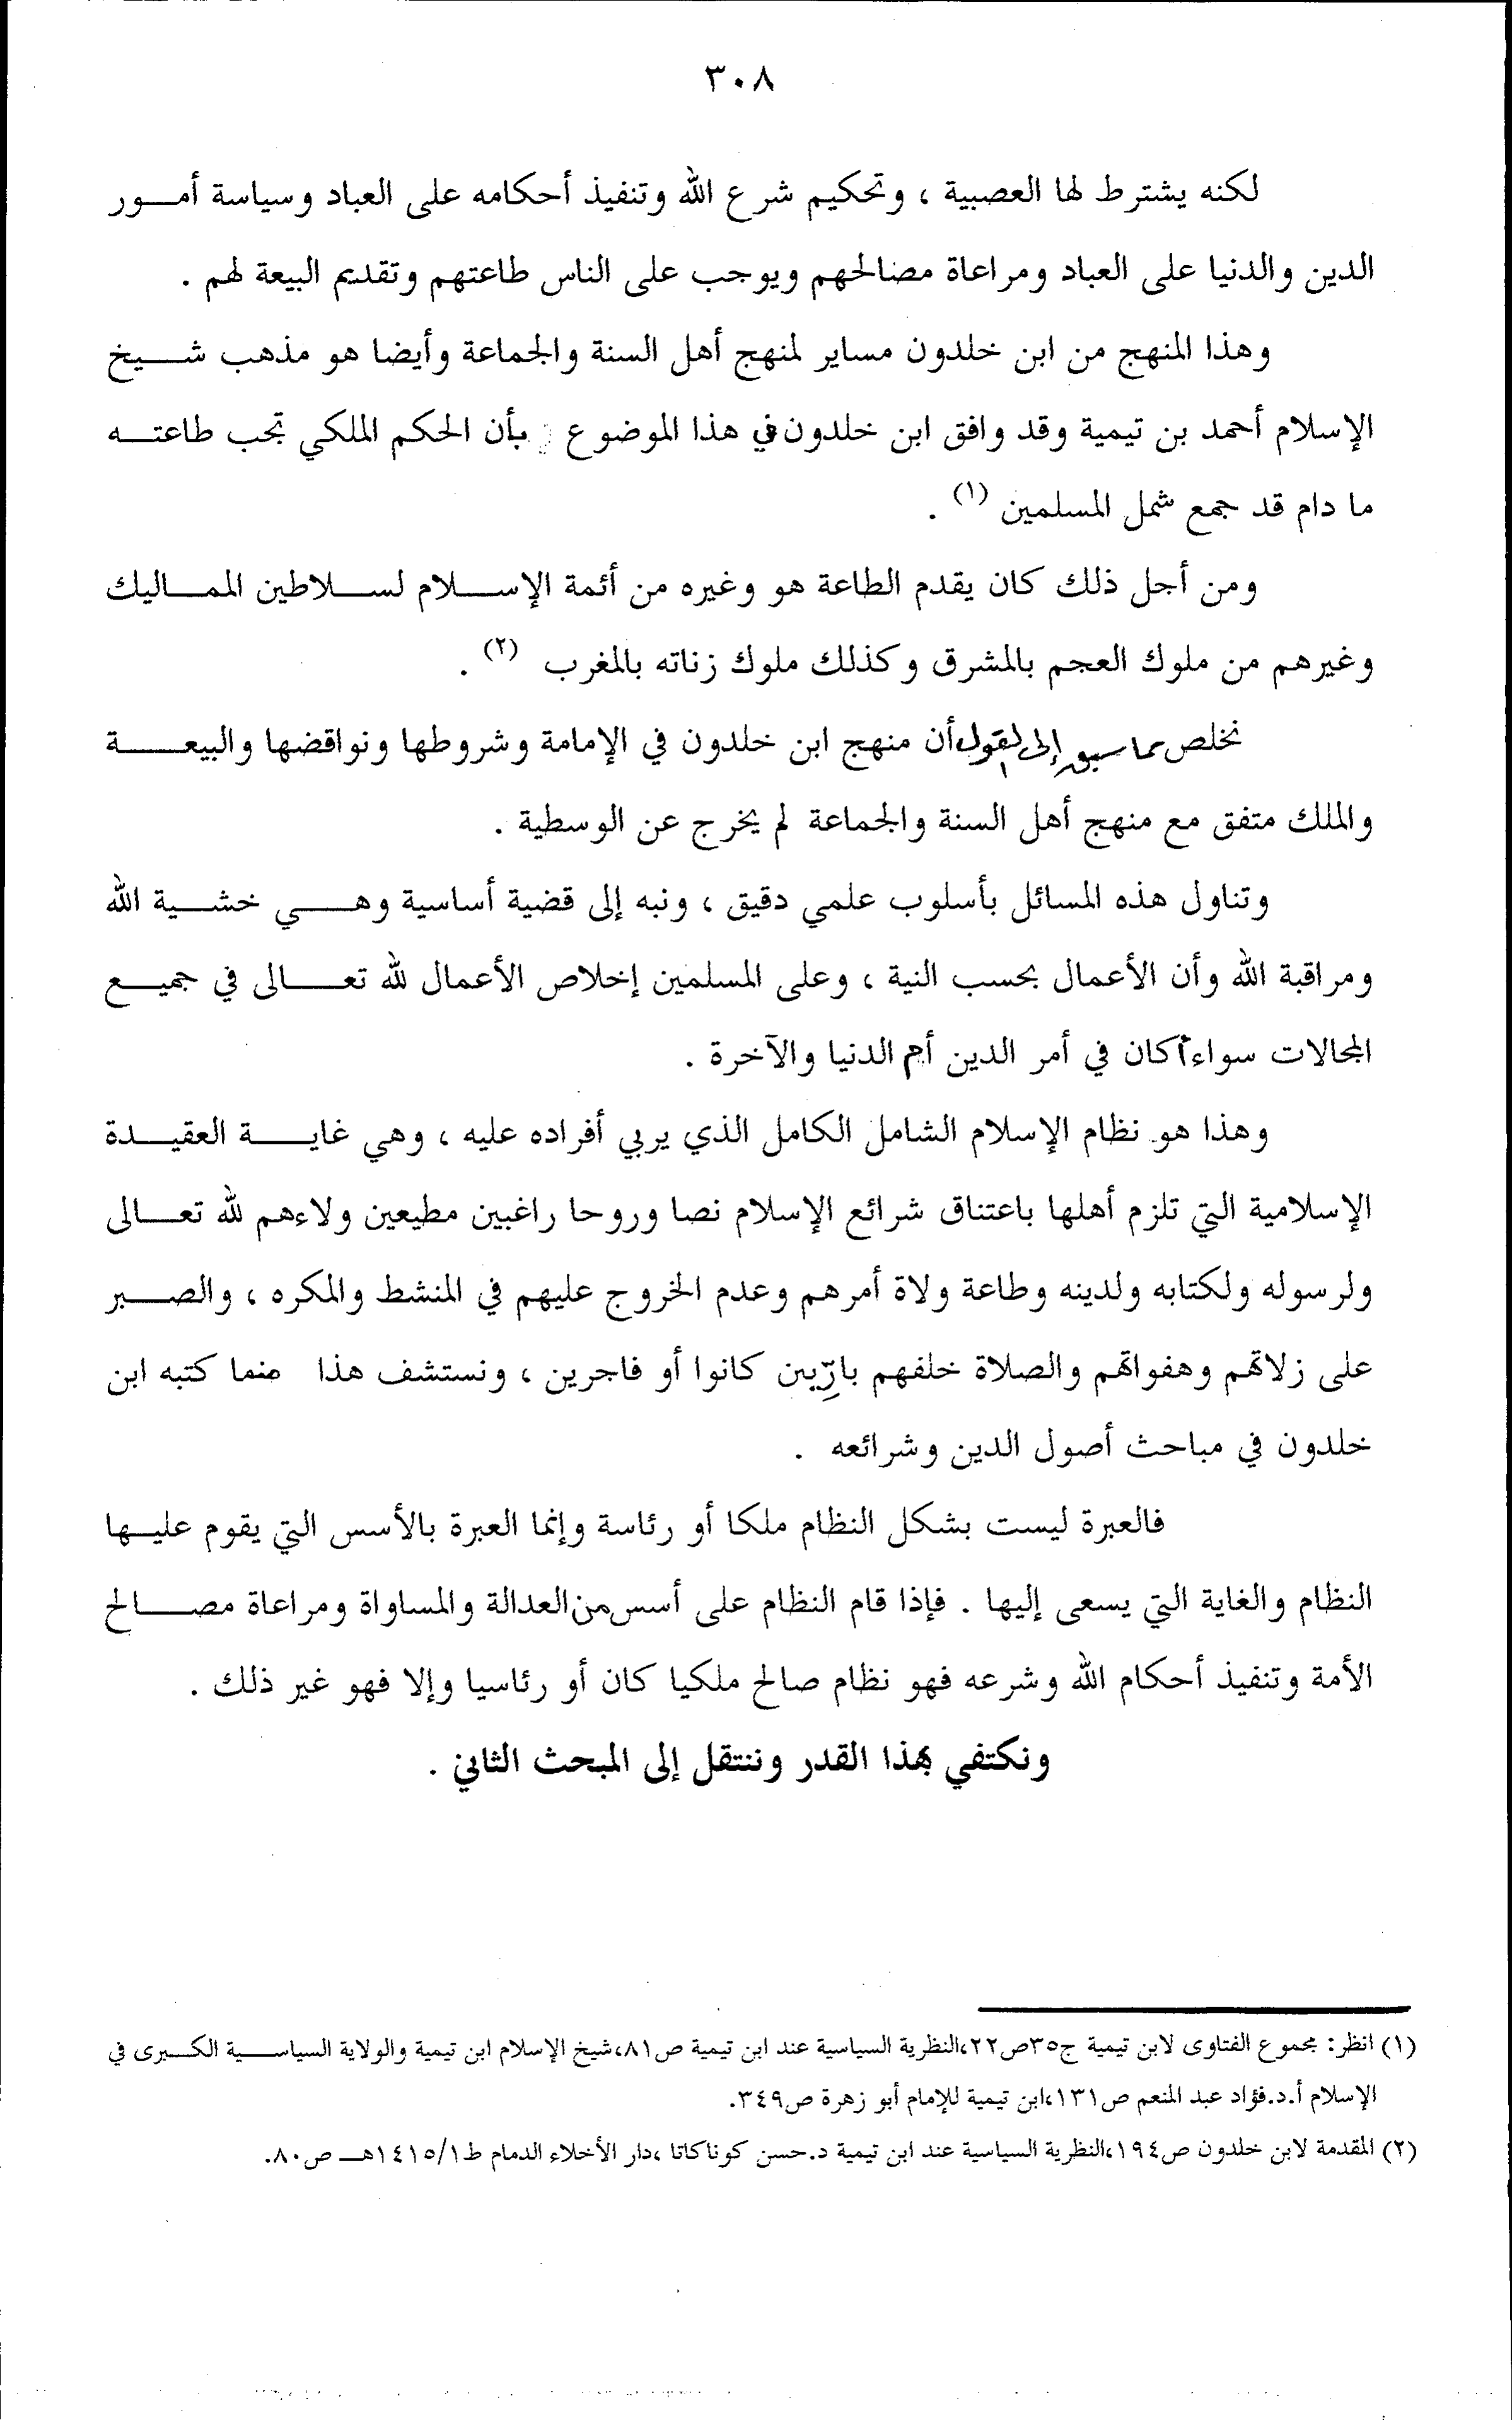 ٣٠٨
لكنه يشترط لها العصبية ، وتحكيم شرع الله وتنفيذ أحكامه على العباد وسياسة أمور
الدين والدنيا على العباد ومراعاة مصالحهم ويوجب على الناس طاعتهم وتقديم البيعة لهم .
وهذا المنهج من ابن خلدون مساير لمنهج أهل السنة والجماعة وأيضا هو مذهب شيخ
الإسلام أحمد بن تيمية وقد وافق ابن خلدون في هذا الموضوع بأن الحكم الملكي تجب طاعته
ما دام قد جمع شمل المسلمين (١) .
ومن أجل ذلك كان يقدم الطاعة هو وغيره من أئمة الإسلام لسلاطين المماليك
وغيرهم من ملوك العجم بالمشرق وكذلك ملوك زناته بالمغرب (٢) .
نخلص مما سبق إلى القول أن منهج ابن خلدون في الإمامة وشروطها ونواقضها والبيعة
والملك متفق مع منهج أهل السنة والجماعة لم يخرج عن الوسطية .
وتناول هذه المسائل بأسلوب علمي دقيق ، ونبه إلى قضية أساسية وهي خشية الله
ومراقبة الله وأن الأعمال بحسب النية ، وعلى المسلمين إخلاص الأعمال لله تعالى في جميع
المجالات سواء أكان في أمر الدين أم الدنيا والآخرة .
وهذا هو نظام الإسلام الشامل الكامل الذي يربي أفراده عليه ، وهي غاية العقيدة
الإسلامية التي تلزم أهلها باعتناق شرائع الإسلام نصا وروحا راغبين مطيعين ولاءهم لله تعالى
ولرسوله ولكتابه ولدينه وطاعة ولاة أمرهم وعدم الخروج عليهم في المنشط والمكره ، والصبر
على زلاتهم وهفواتهم والصلاة خلفهم بارّين كانوا أو فاجرين ، ونستشف هذا مما كتبه ابن
خلدون في مباحث أصول الدين وشرائعه .
فالعبرة ليست بشكل النظام ملكا أو رئاسة وإنما العبرة بالأسس التي يقوم عليها
النظام والغاية التي يسعى إليها . فإذا قام النظام على أسس من العدالة والمساواة ومراعاة مصالح
الأمة وتنفيذ أحكام الله وشرعه فهو نظام صالح ملكيا كان أو رئاسيا وإلا فهو غير ذلك .
ونكتفي بهذا القدر وننتقل إلى المبحث الثاني .
(١) انظر: مجموع الفتاوى لابن تيمية ج٣٥ص٢٢،النظرية السياسية عند ابن تيمية ص٨١،شيخ الإسلام ابن تيمية والولاية السياسية الكبرى في
الإسلام أ.د.فؤاد عبد المنعم ص١٣١،ابن تيمية للإمام أبو زهرة ص٣٤٩.
(٢) المقدمة لابن خلدون ص١٩٤،النظرية السياسية عند ابن تيمية د.حسن كوناكاتا ،دار الأخلاء الدمام ط١٤١٥/١هـ ص٨٠.